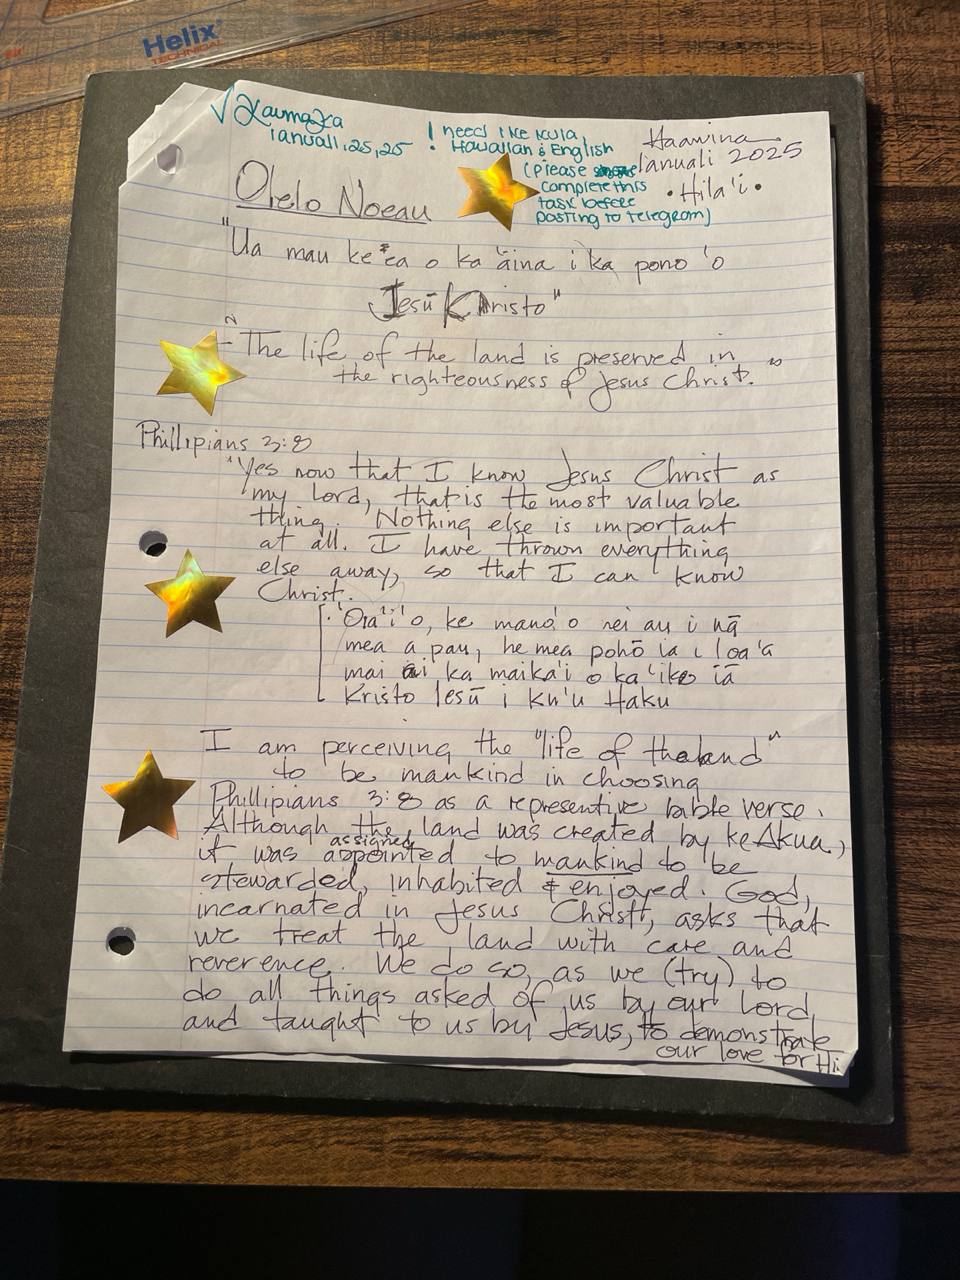 Helix
TECHNICAL
Ianuali, 25, 25
! need like kula,
Hawaiian & English
(please
complete this
task before
posting to telegram)
Haawina
Ianuali 2025
• Hila'i •
Olelo Noeau
"Ua mau ke ea o ka āina i ka pono 'o
Jesū Khristo"
"The life of the land is preserved in
the righteousness of Jesus Christ."
Phillipians 3:8
"Yes now that I know Jesus Christ as
my Lord, that is the most valuable
thing. Nothing else is important
at all. I have thrown everything
else away, so that I can know
Christ.
'Oia'i'o, ke mano'o nei au i nā
mea a pau, he mea pohō ia i loa'a
mai ai ka maika'i o ka 'ike iā
Kristo Iesū i ku'u Haku
I am perceiving the "life of the land"
to be mankind in choosing
Phillipians 3:8 as a representive bible verse.
Although the land was created by ke Akua,
assigned
it was appointed to mankind to be
stewarded, inhabited & enjoyed. God,
incarnated in Jesus Christ, asks that
we treat the land with care and
reverence. We do so, as we (try) to
do all things asked of us by our Lord
and taught to us by Jesus, to demonstrate
our love for Hi